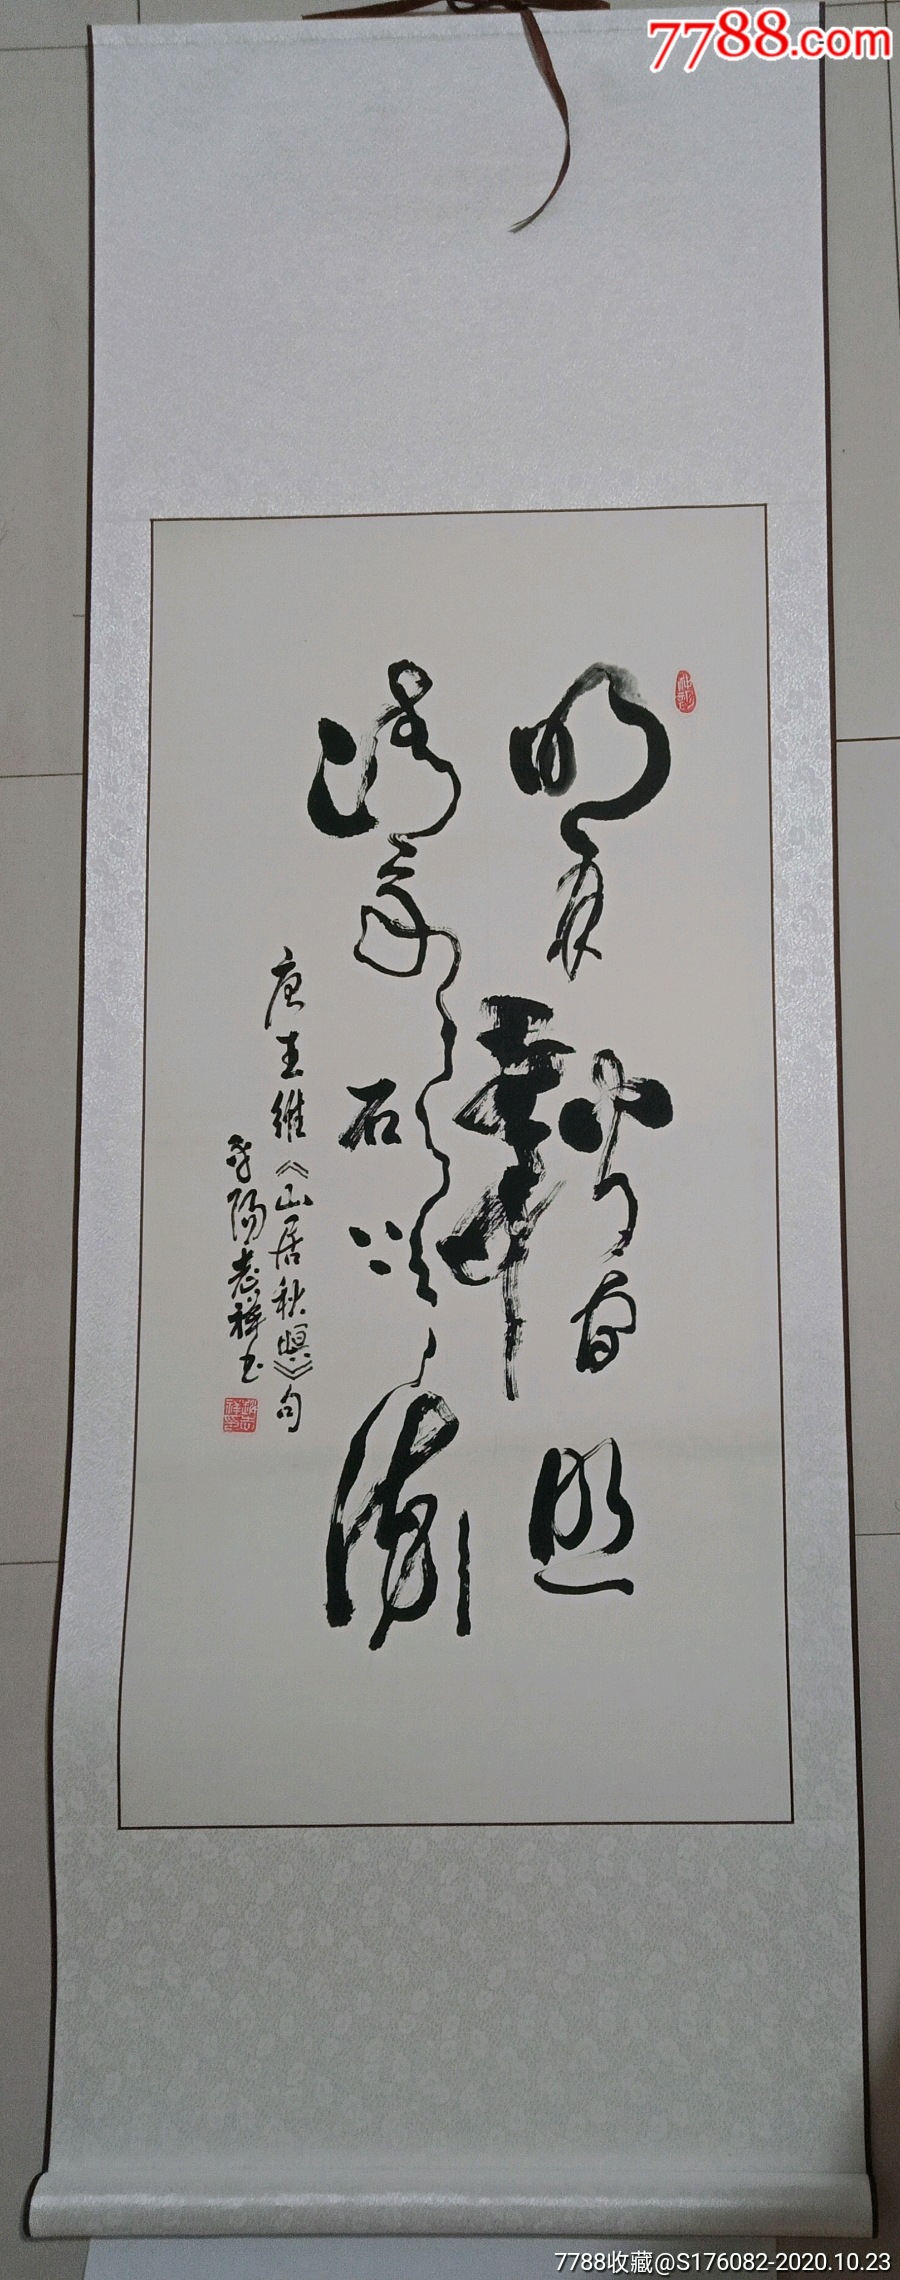 7788.com
明月松間照
清泉石上流
唐王維《山居秋暝》句
平陽志祥书
趙志祥印
7788收藏@S176082-2020.10.23